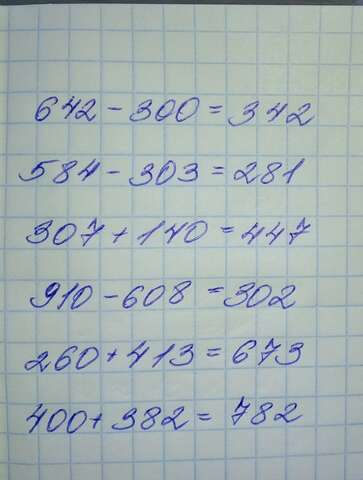 642 - 300 = 342
584 - 303 = 281
307 + 140 = 447
910 - 608 = 302
260 + 413 = 673
400 + 382 = 782